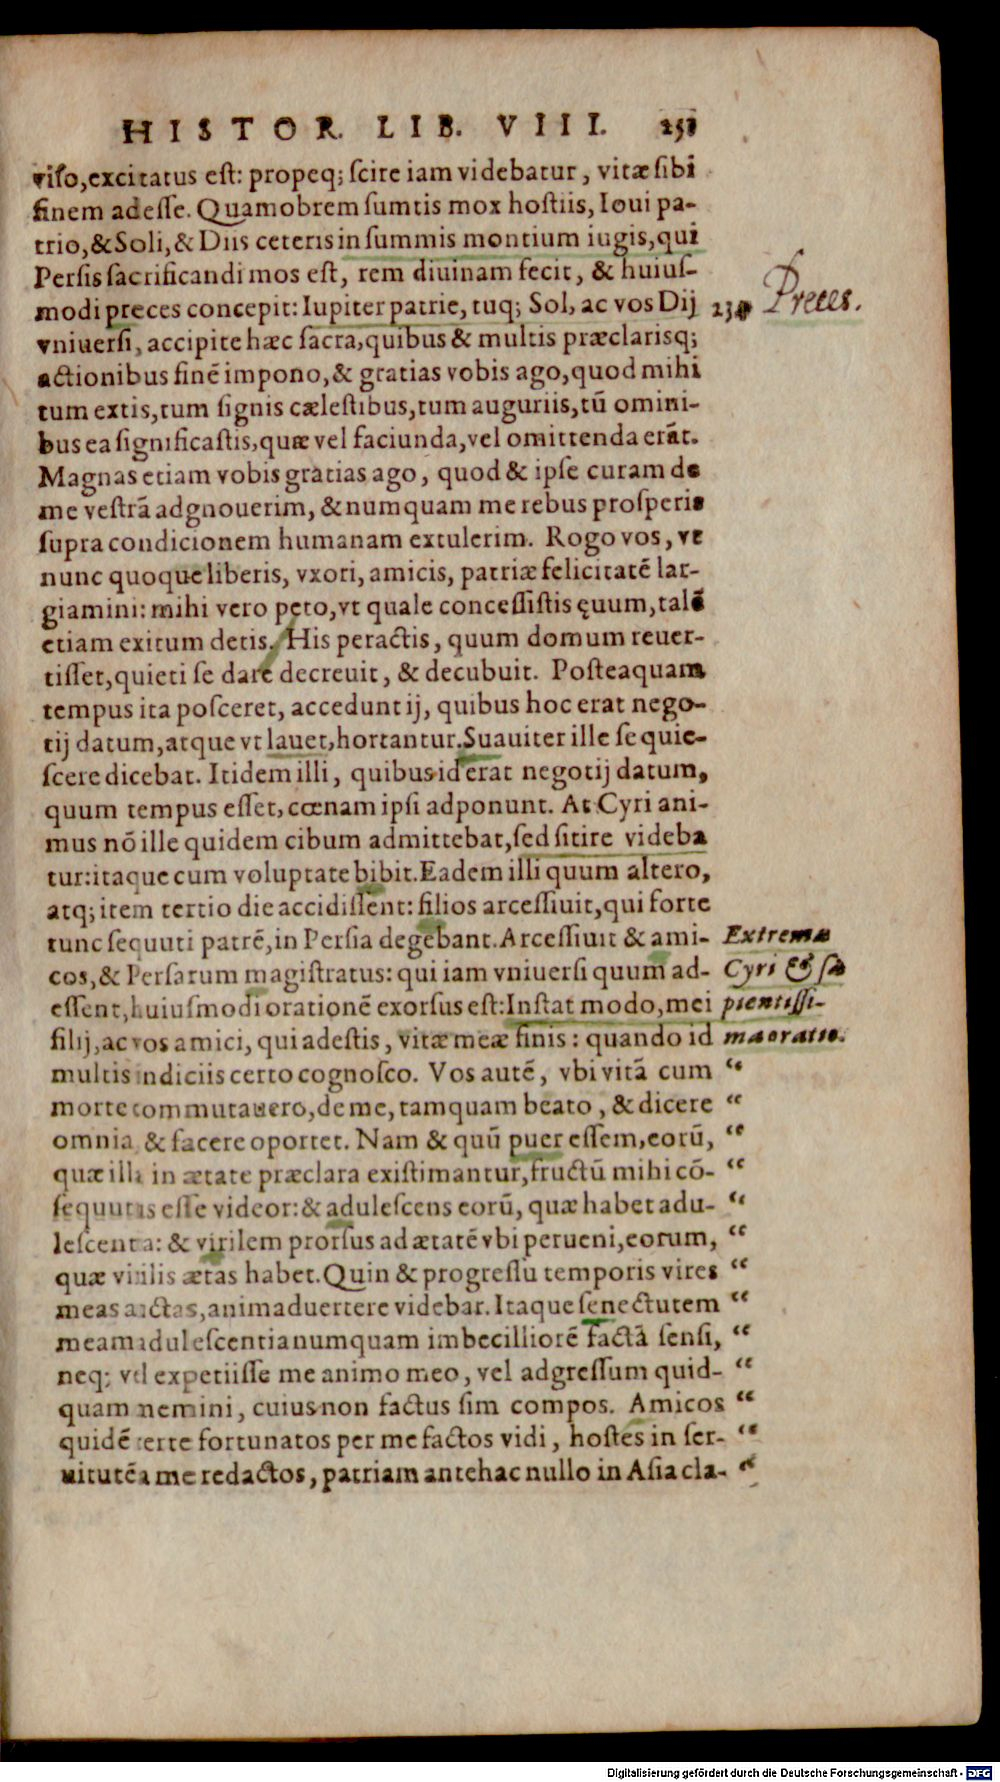 HISTOR. LIB. VIII. 251
viſo,excitatus eſt: propeq; ſcire iam videbatur, vitæ ſibi
finem adeſſe. Quamobrem ſumtis mox hoſtiis, Ioui pa-
trio,&Soli,& Diis ceteris in ſummis montium iugis,qui
Perſis ſacrificandi mos eſt, rem diuinam fecit, & huiuſ-
modi preces concepit: Iupiter patrie, tuq; Sol, ac vos Dij 234 Preces.
vniuerſi, accipite hæc ſacra,quibus & multis præclarisq;
actionibus finē impono,& gratias vobis ago,quod mihi
tum extis,tum ſignis cæleſtibus,tum auguriis,tū omini-
bus ea ſignificaſtis,quæ vel faciunda,vel omittenda erāt.
Magnas etiam vobis gratias ago, quod & ipſe curam de
me veſtrā adgnouerim, & numquam me rebus proſperis
ſupra condicionem humanam extulerim. Rogo vos, vt
nunc quoque liberis, vxori, amicis, patriæ felicitatē lar-
giamini: mihi vero peto,vt quale conceſſiſtis ęuum,talē
etiam exitum detis. His peractis, quum domum reuer-
tiſſet,quieti ſe dare decreuit, & decubuit. Poſteaquam
tempus ita poſceret, accedunt ij, quibus hoc erat nego-
tij datum,atque vt lauet,hortantur. Suauiter ille ſe quie-
ſcere dicebat. Itidem illi, quibus id erat negotij datum,
quum tempus eſſet, cœnam ipſi adponunt. At Cyri ani-
mus nō ille quidem cibum admittebat,ſed ſitire videba
tur:itaque cum voluptate bibit. Eadem illi quum altero,
atq; item tertio die accidiſſent: filios arceſſiuit,qui forte
tunc ſequuti patrē,in Perſia degebant. Arceſſiuit & ami- Extrema
cos,& Perſarum magiſtratus: qui iam vniuerſi quum ad- Cyri & ſa
eſſent,huiuſmodi orationē exorſus eſt: Inſtat modo, mei pientiſſi-
filij,ac vos amici, qui adeſtis, vitæ meæ finis: quando id ma oratio.
multis indiciis certo cognoſco. Vos autē, vbi vitā cum “
morte commutauero,de me, tamquam beato, & dicere “
omnia & facere oportet. Nam & quū puer eſſem,eorū, “
quæ illa in ætate præclara exiſtimantur,fructū mihi cō- “
ſequutus eſſe videor:& adulescens eorū, quæ habet adu- “
leſcentia: & virilem prorſus ad ætatē vbi perueni,eorum, “
quæ virilis ætas habet. Quin & progreſſu temporis vires “
meas auctas,animaduertere videbar. Itaque ſenectutem “
meam adulescentia numquam imbecilliorē factā ſenſi, “
neq; vel expetiiſſe me animo meo, vel adgreſſum quid- “
quam memini, cuius non factus ſim compos. Amicos “
quidē certe fortunatos per me factos vidi, hoſtes in ſer- “
uitutē a me redactos, patriam antehac nullo in Aſia cla- “
Digitalisierung gefördert durch die Deutsche Forschungsgemeinschaft - DFG